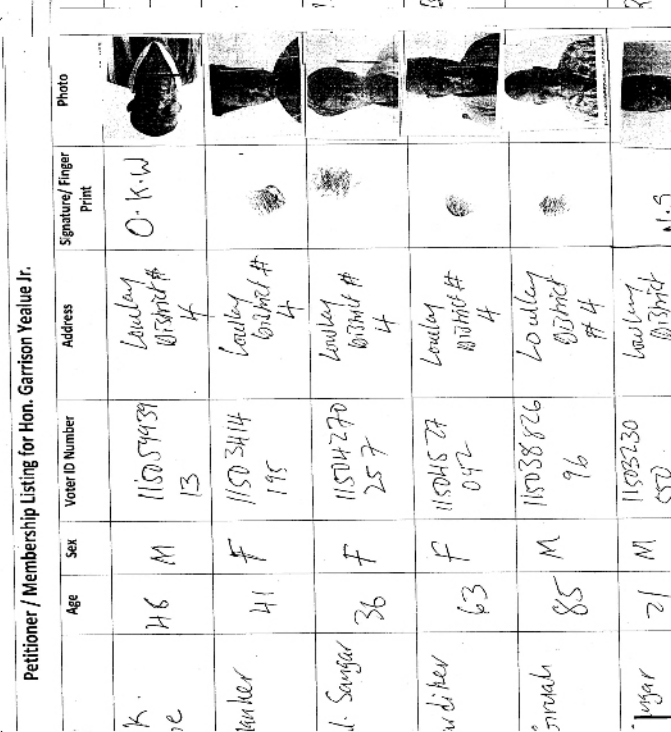 Petitioner / Membership Listing for Hon. Garrison Yealue Jr.
Age Sex Voter ID Number Address Signature/ Finger Print Photo
K.
46 M 115059939 13 Lowlay District # 4 O.K.W
41 F 11503414 195 Lowlay District # 4
Sangar 36 F 11504270 257 Lowlay District # 4
63 F 11504527 092 Lowlay District # 4
85 M 115038826 96 Lowlay District # 4
21 M 11503230 Lowlay District